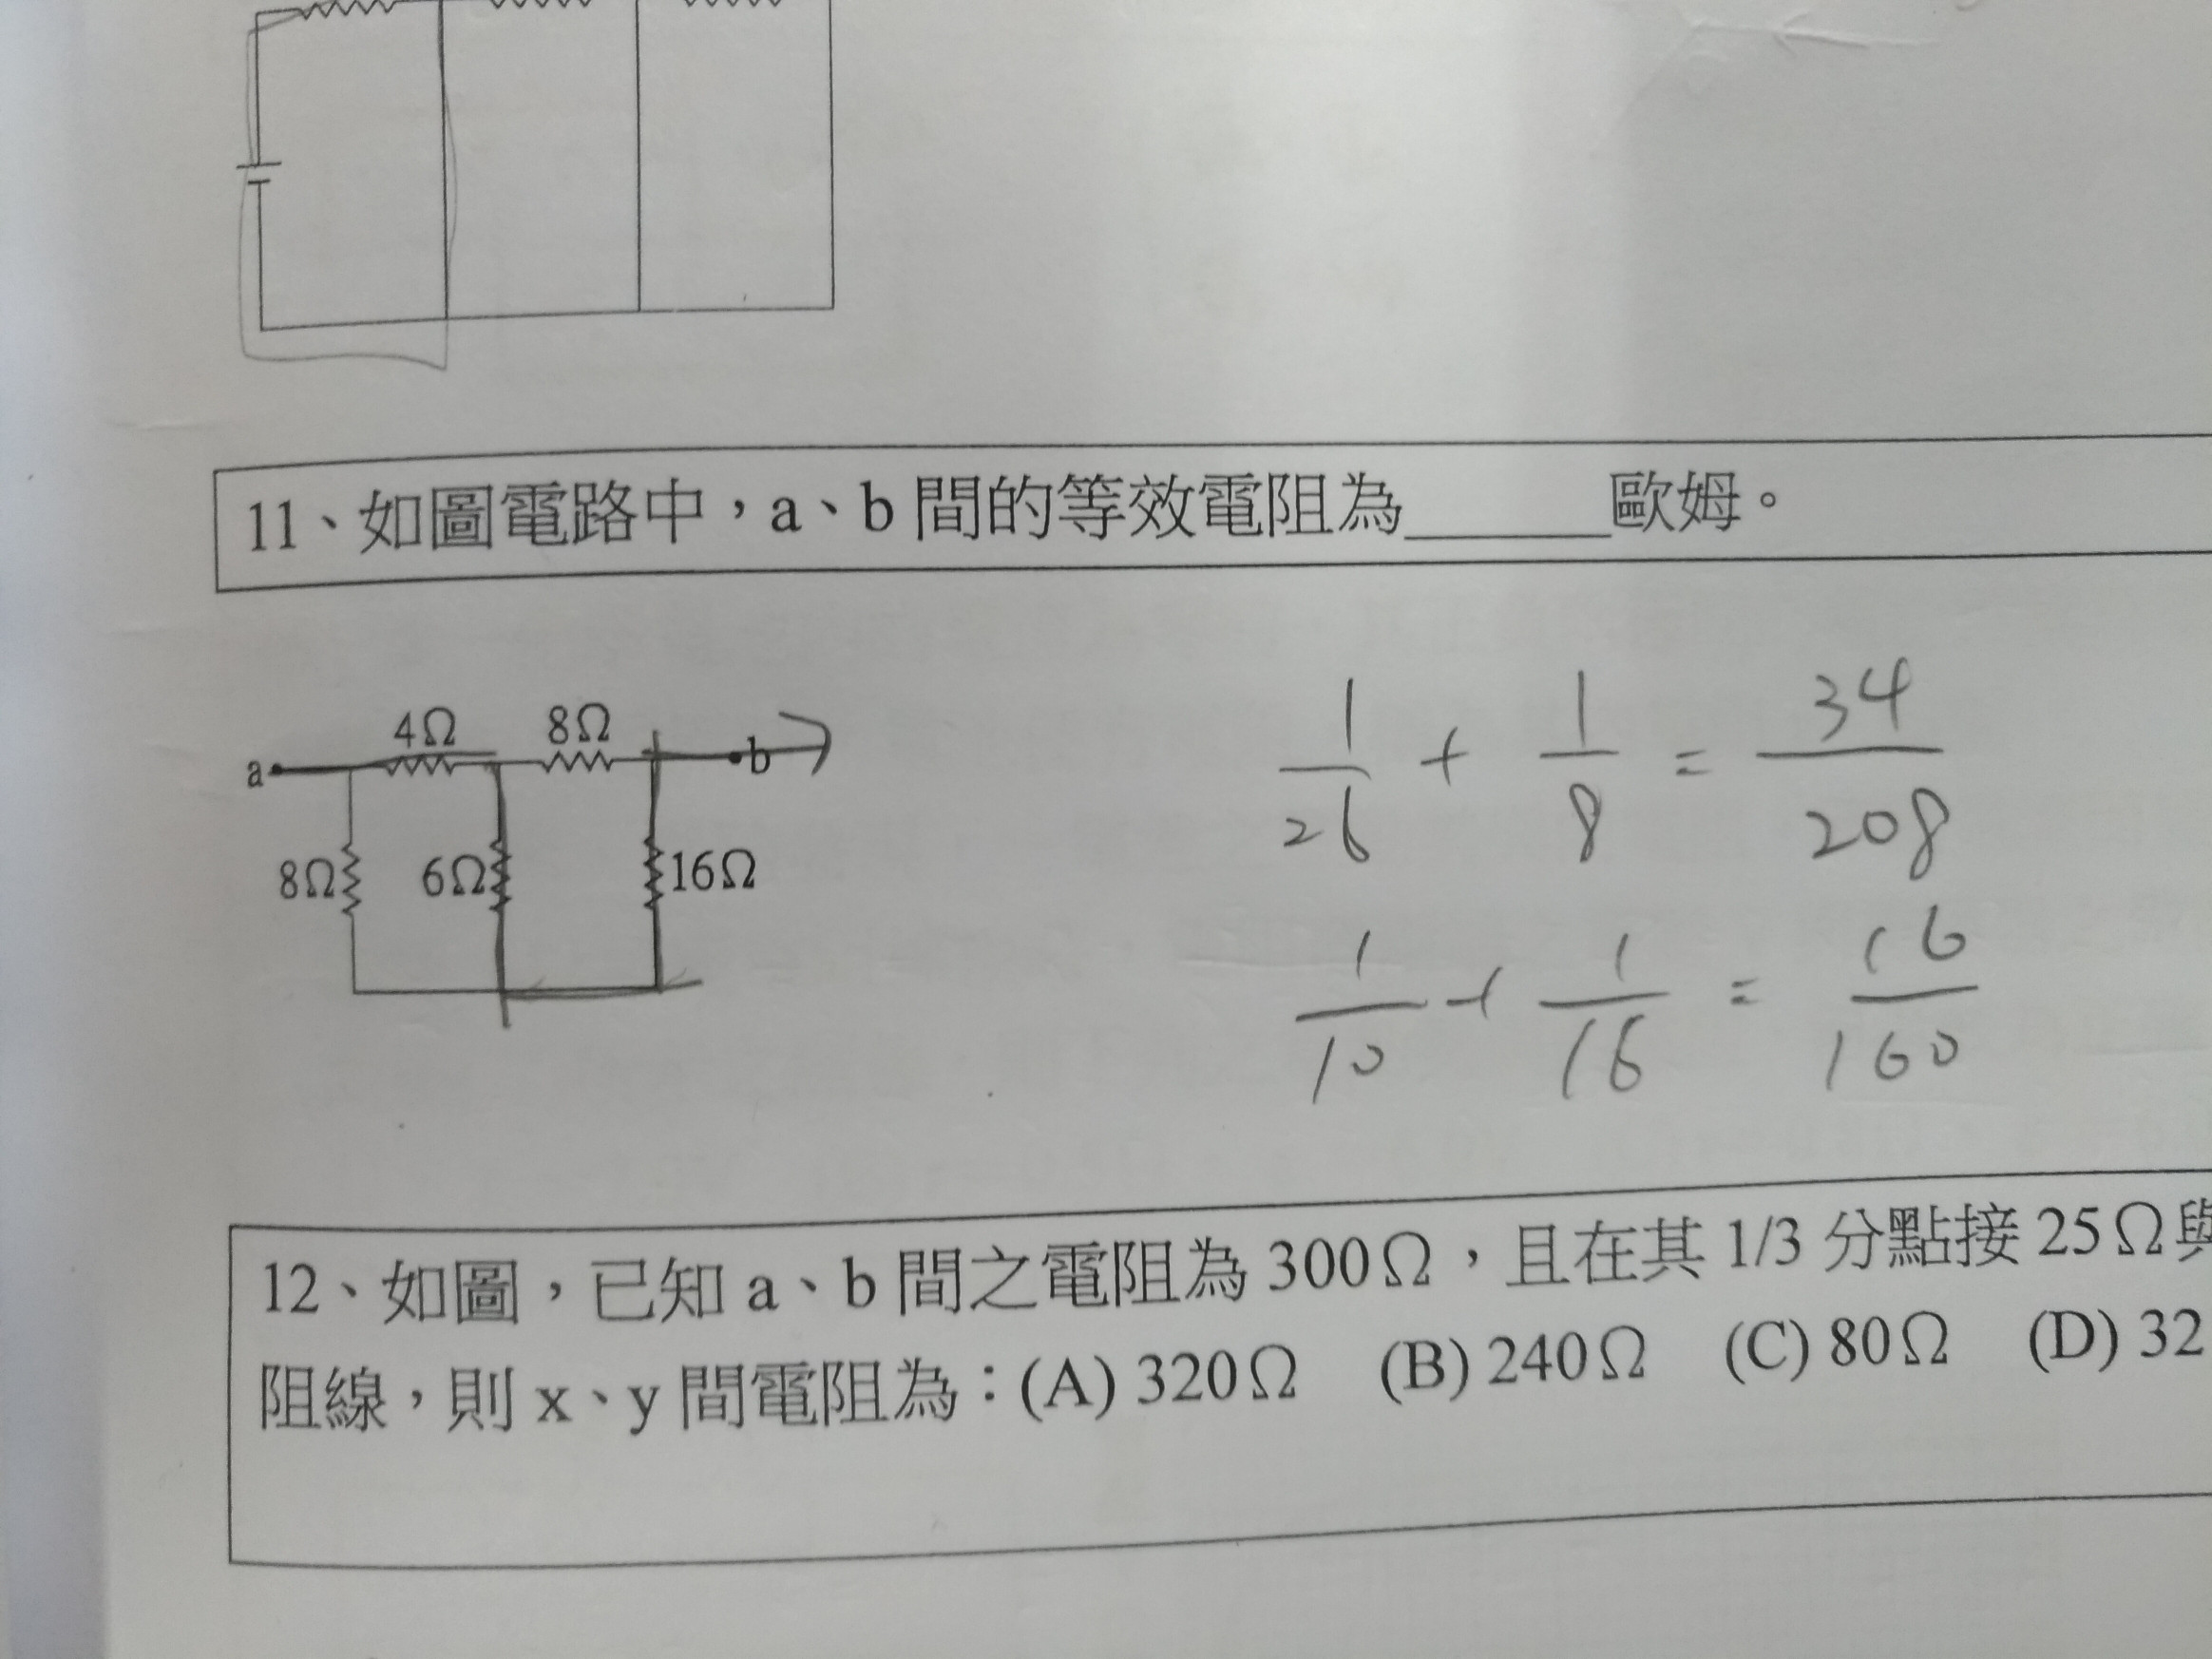 11、如圖電路中，a、b 間的等效電阻為______歐姆。
4Ω 8Ω
a b
8Ω 6Ω 16Ω
1/26 + 1/8 = 34/208
1/10 + 1/16 = 16/160
12、如圖，已知 a、b 間之電阻為 300Ω，且在其 1/3 分點接 25Ω與
阻線，則 x、y 間電阻為：(A) 320Ω (B) 240Ω (C) 80Ω (D) 32